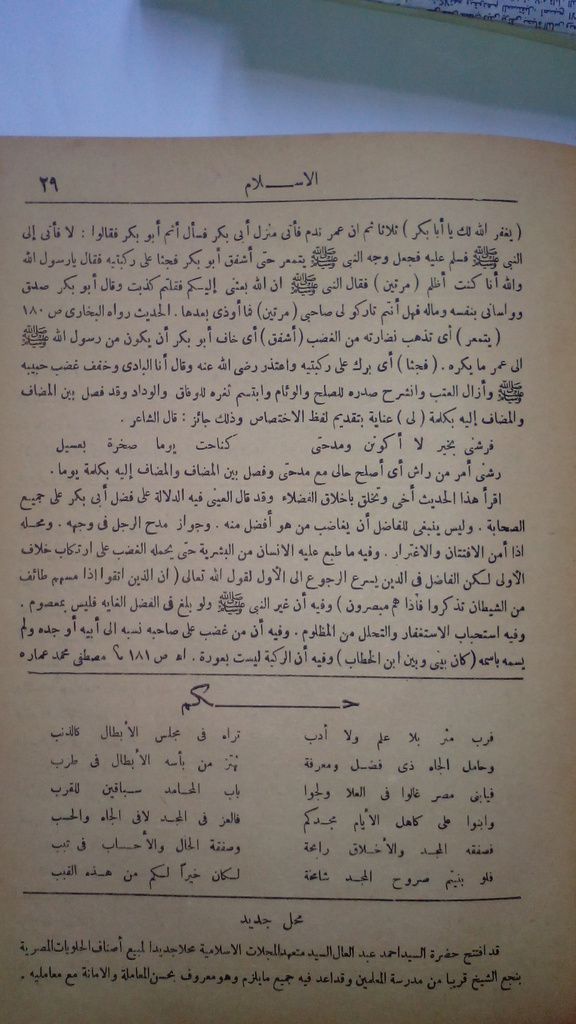 الاســـلام
٢٩
( يغفر الله لك يا أبا بكر ) ثلاثا ثم ان عمر ندم فأتى منزل أبى بكر فسأل أثم أبو بكر فقالوا : لا فأتى إلى
النبى ﷺ فسلم عليه فجعل وجه النبى ﷺ يتمعر حتى أشفق أبو بكر فجثا على ركبتيه فقال يارسول الله
والله أنا كنت أظلم ( مرتين ) فقال النبى ﷺ ان الله بعثنى إليسكم فقلتم كذبت وقال أبو بكر صدق
وواسانى بنفسه وماله فهل أنتم تاركو لى صاحبى ( مرتين ) فما أوذى بعدها . الحديث رواه البخارى ص ١٨٠
( يتمعر ) أى تذهب نضارته من الغضب ( أشفق ) أى خاف أبو بكر أن يكون من رسول الله ﷺ
الى عمر ما يكره . ( فجثا ) أى برك على ركبتيه واعتذر رضى الله عنه وقال أنا البادى وخفف غضب حبيبه
ﷺ وأزال العتب وانشرح صدره للصلح والوئام وابتسم ثغره للوفاق والوداد وقد فصل بين المضاف
والمضاف إليه بكلمة ( لى ) عناية بتقديم لفظ الاختصاص وذلك جائز : قال الشاعر .
فرشنى بخير لا أكونن ومدحتى كناحت يوما صخرة بعسيل
رشنى أمر من راش أى أصلح حالى مع مدحتى وفصل بين المضاف والمضاف إليه بكلمة يوما .
اقرأ هذا الحديث أخى وتخلق باخلاق الفضلاء وقد قال العينى فيه الدلالة على فضل أبى بكر على جميع
الصحابة . وليس ينبغى للفاضل أن يغاضب من هو أفضل منه . وجواز مدح الرجل فى وجهه . ومحله
اذا أمن الافتتان والاغترار . وفيه ما طبع عليه الانسان من البشرية حتى يحمله الغضب على ارتكاب خلاف
الأولى لكن الفاضل فى الدين يسرع الرجوع الى الأول لقول الله تعالى ( ان الذين اتقوا اذا مسهم طائف
من الشيطان تذكروا فاذا هم مبصرون ) وفيه أن غير النبى ﷺ ولو بلغ فى الفضل الغايه فليس بمعصوم .
وفيه استحباب الاستغفار والتحلل من المظلوم . وفيه أن من غضب على صاحبه نسبه الى أبيه أو جده ولم
يسمه باسمه ( كان بينى وبين ابن الخطاب ) وفيه أن الركبة ليست بعورة . اه ص ١٨١ مصطفى محمد عماره
حـــــكم
فرب مثر بلا علم ولا أدب تراه فى مجلس الأبطال كالذنب
وحامل الجاه ذى فضل ومعرفة تهتز من بأسه الأبطال فى طرب
فيابنى مصر غالوا فى العلا ولجوا باب المحامد سباقين للقرب
وابنوا على كاهل الأيام مجدكم فالعز فى المجد لافى الجاه والحسب
فصفقه المجد والأخلاق رابحة وصفقة المال والأحساب فى تبب
فلو بنيتم صروح المجد شامخة لكان خيراً لكم من هذه القبب
محل جديد
قد افتتح حضرة السيد احمد عبد العال السيد متعهد المجلات الاسلامية محلا جديدا لمبيع أصناف الحلويات المصرية
بنجع الشيخ قريبا من مدرسة المعلمين وقد اعد فيه جميع مايلزم وهو معروف بحسن المعاملة والامانة مع معامليه .